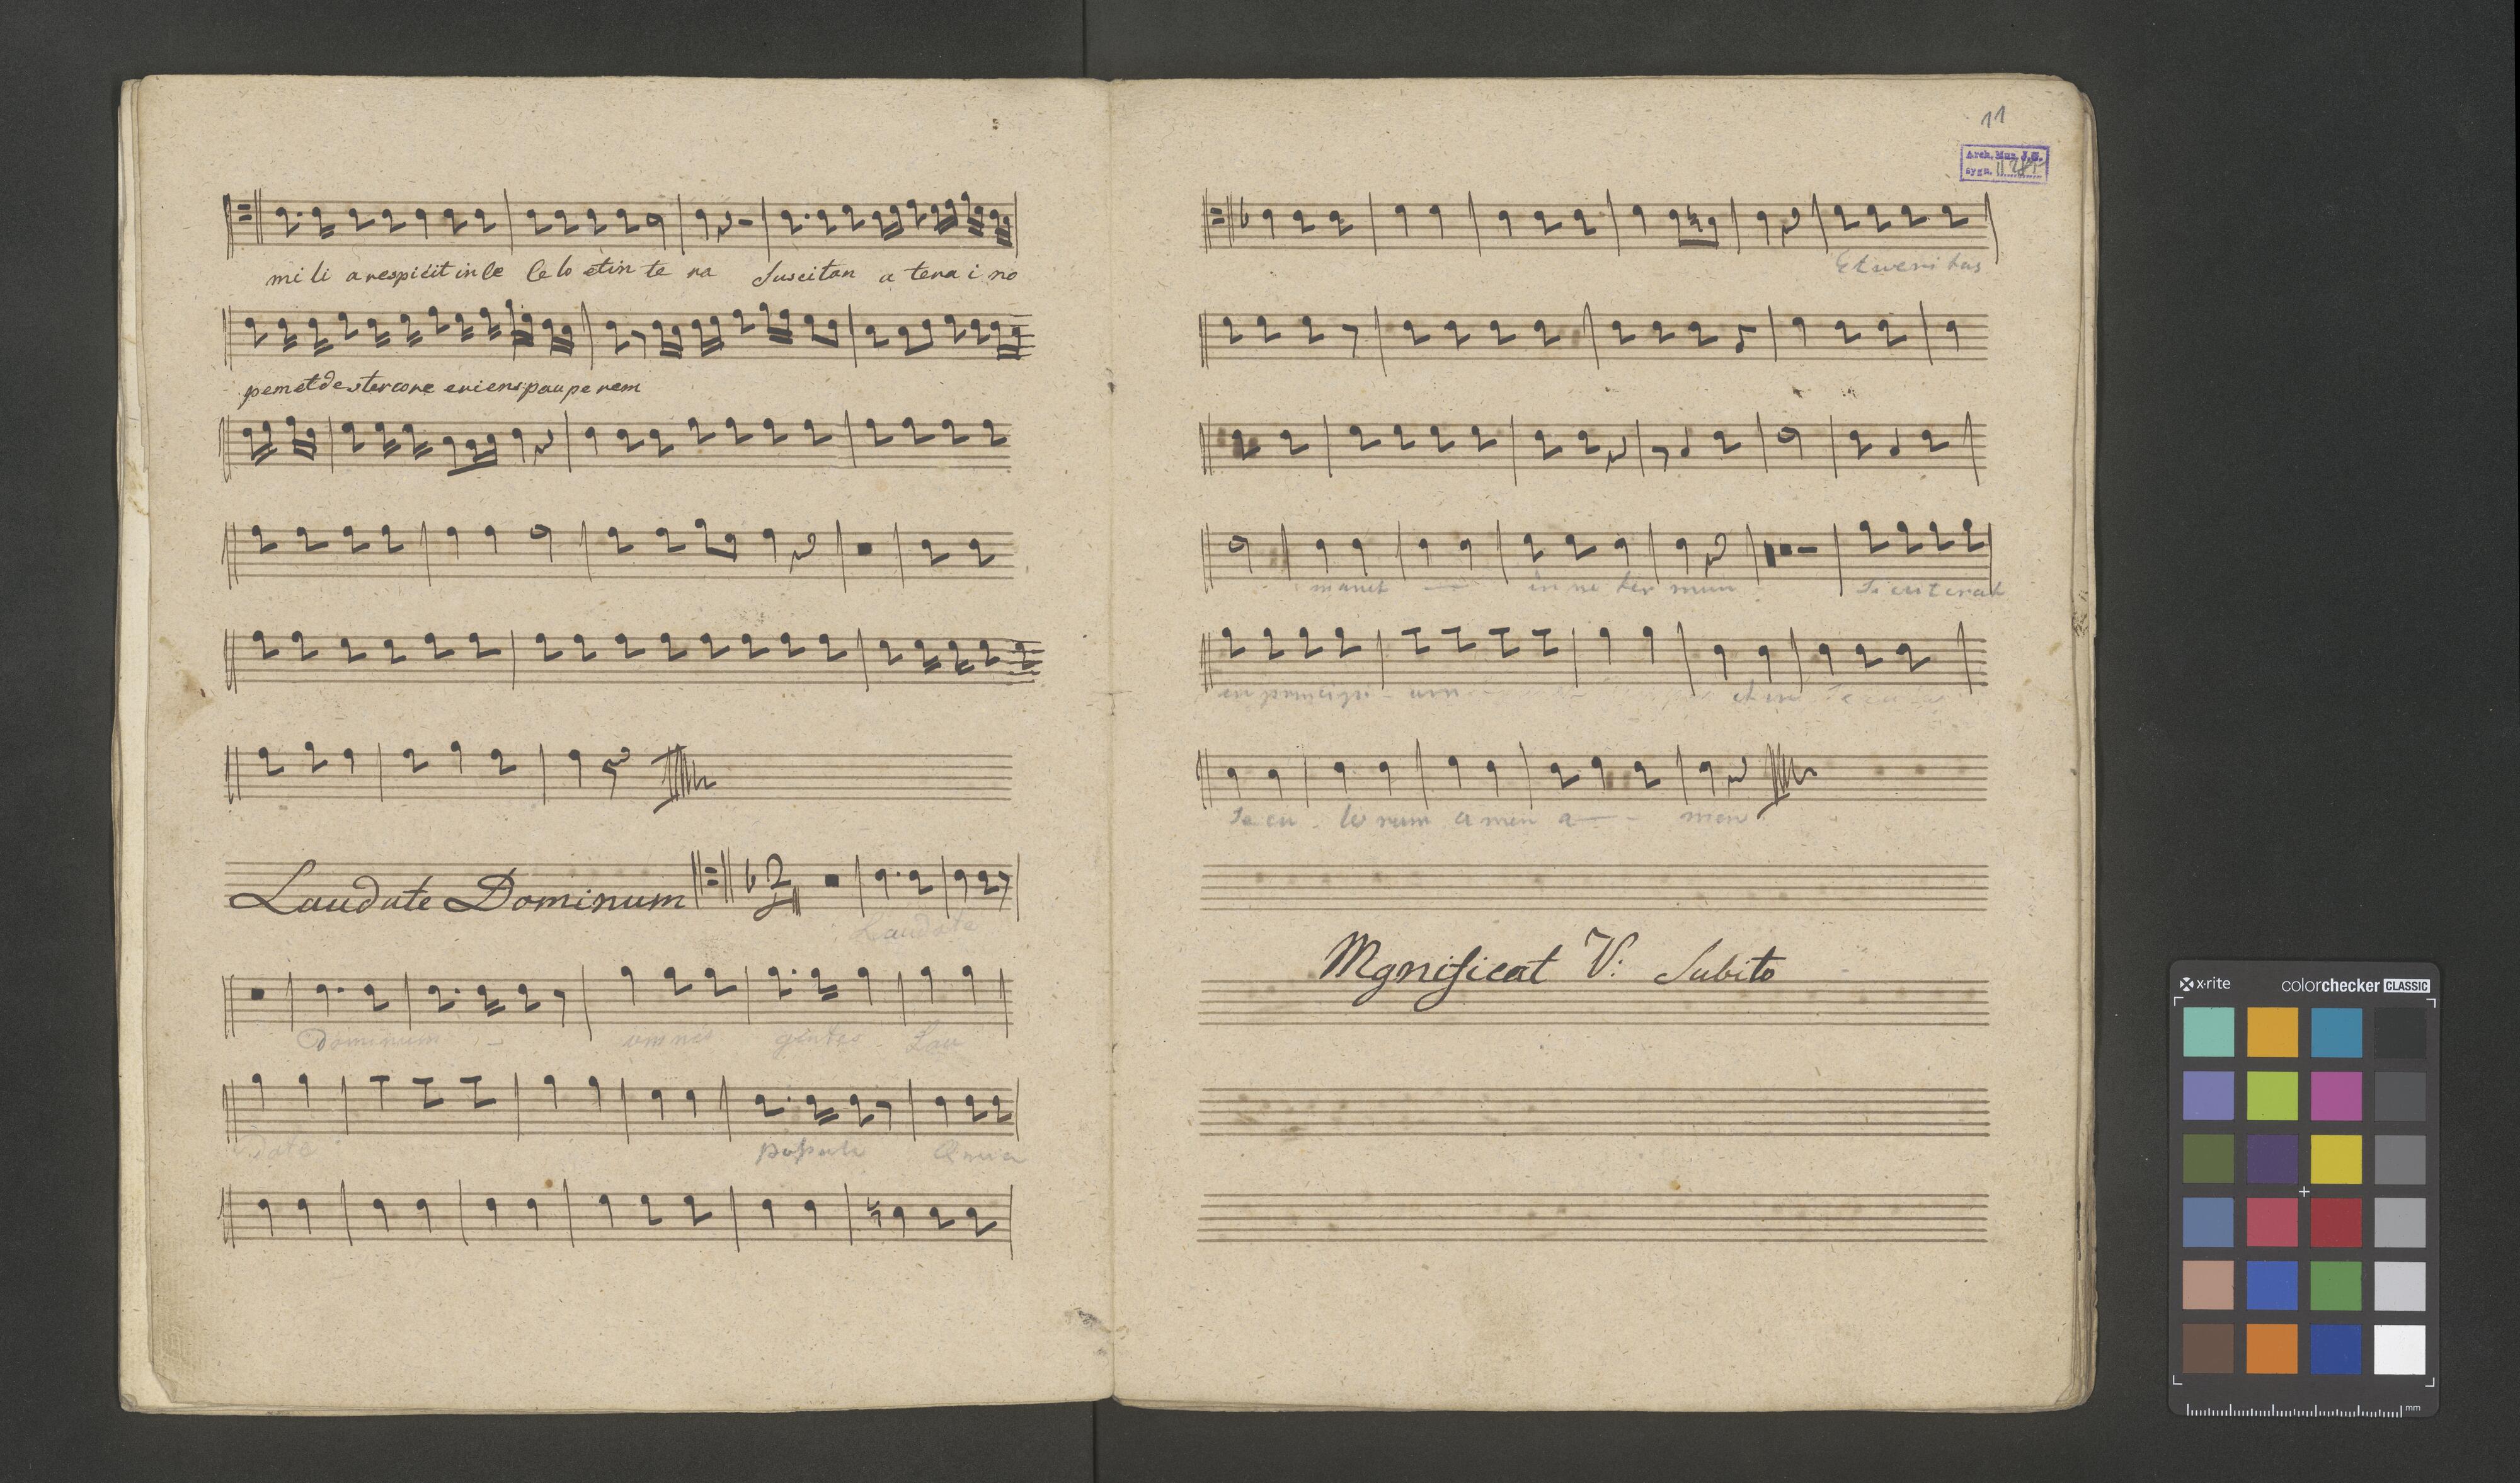 mi li a respicit in ce le lo et in te ra Suscitan a tera i no
pem et de stercore eriens pau pe rem
Laudate Dominum
2
Laudate
Dominum
omnes gentes Lau
date populi
11
Arch. Muz. J. G.
sygn.
Et veri tas
manet in ne ter num
Si cut erat
in principi um et in
Se cu lo rum a men a men
Mgnificat V: Subito
x·rite colorchecker CLASSIC
mm